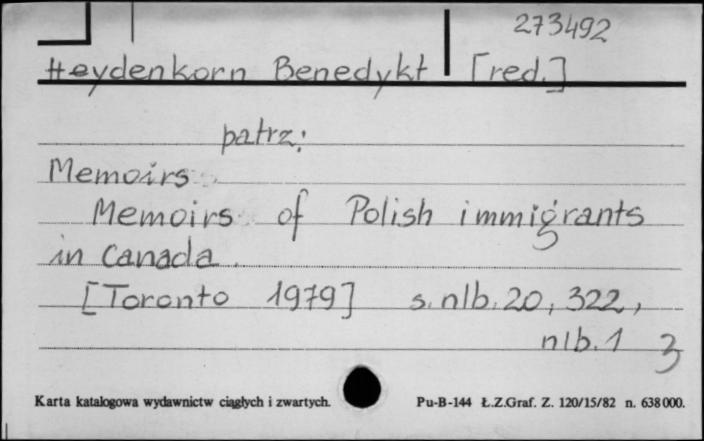 273492
Heydenkorn Benedykt [red.]
patrz:
Memoirs
Memoirs of Polish immigrants
in Canada.
[Toronto 1979] s. nlb. 20, 322,
nlb. 1 3
Karta katalogowa wydawnictw ciągłych i zwartych. Pu-B-144 Ł.Z.Graf. Z. 120/15/82 n. 638000.